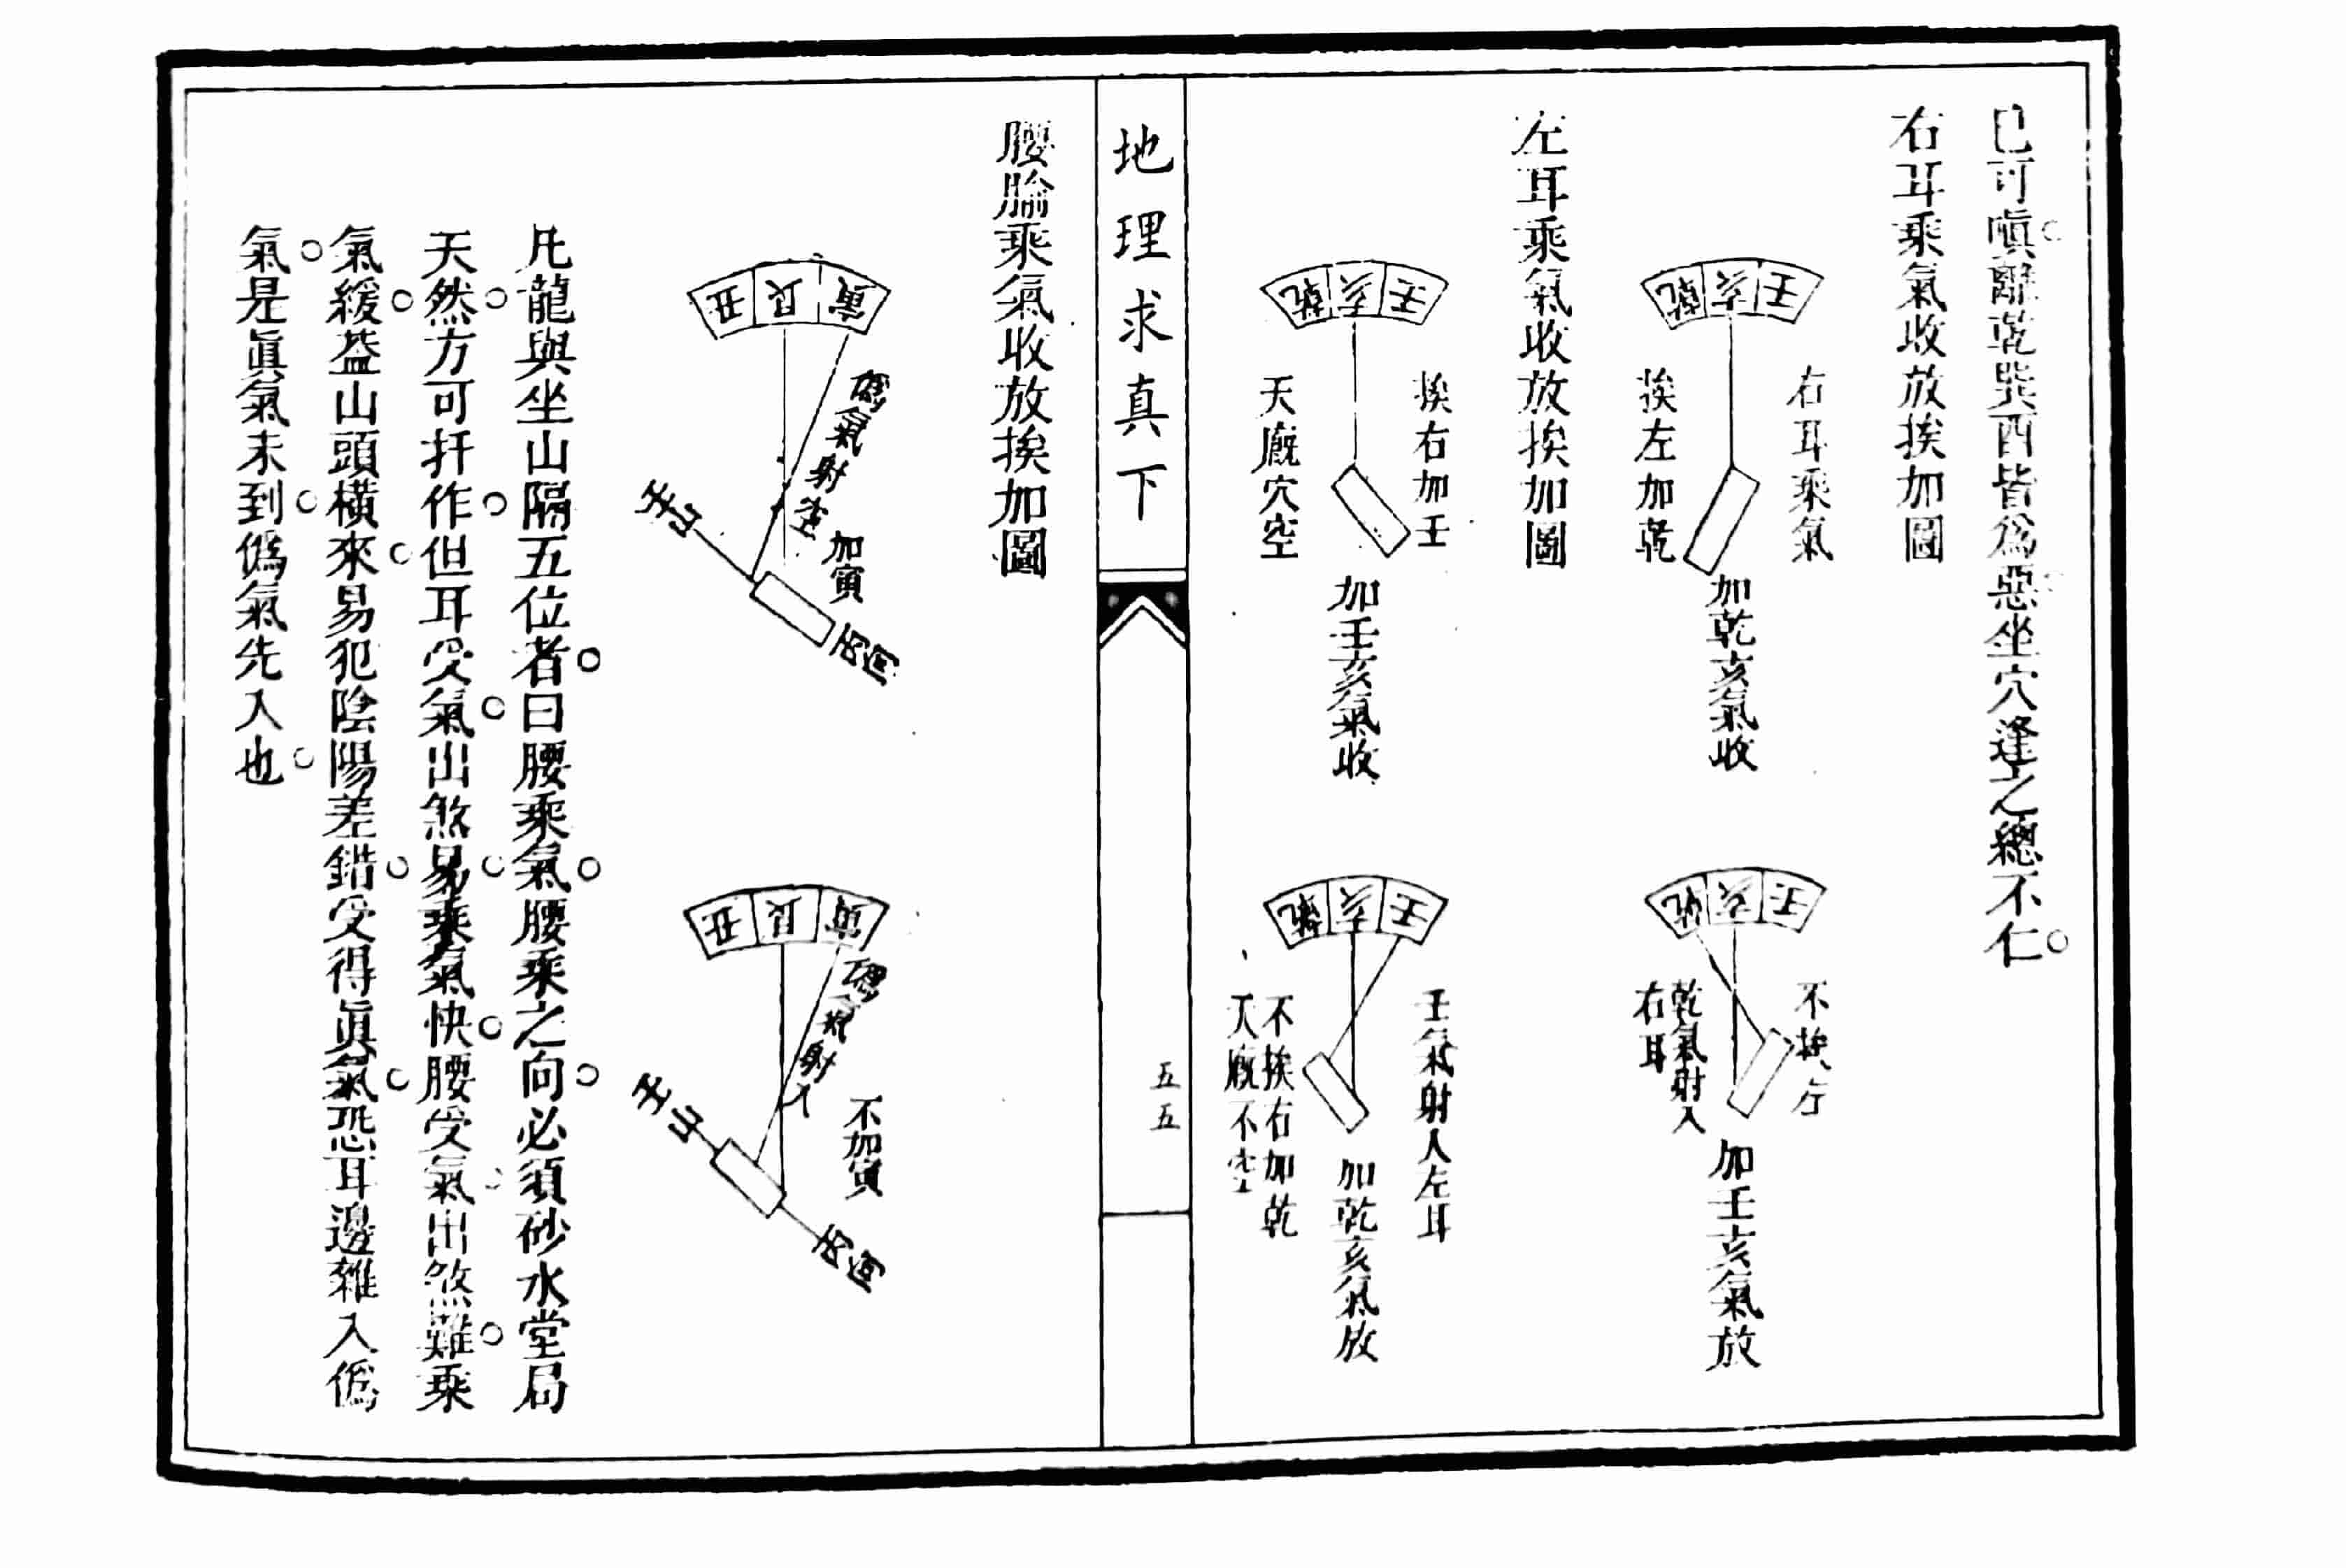 已可嗔離乾巽酉皆爲惡坐穴逢之總不仁
右耳乘氣收放挨加圖
壬
亥
乾
右耳乘氣
挨左加乾
加乾亥氣收
壬
亥
不挨左
乾氣射入
右耳
加壬亥氣放
左耳乘氣收放挨加圖
壬
亥
乾
挨右加壬
天廐穴空
加壬亥氣收
壬
亥
乾
壬氣射人左耳
不挨右加乾
天廐不空
加乾亥氣放
地理求真下
五五
腰腧乘氣收放挨加圖
寅
艮
丑
氣射
加寅
壬山
丙向
寅
艮
丑
氣射入
不加寅
壬山
丙向
凡龍與坐山隔五位者曰腰乘氣腰乘之向必須砂水堂局
天然方可扦作但耳受氣出煞易乘氣快腰受氣出煞難乘
氣緩葢山頭橫來易犯陰陽差錯受得眞氣恐耳邊雜入僞
氣是眞氣未到僞氣先入也